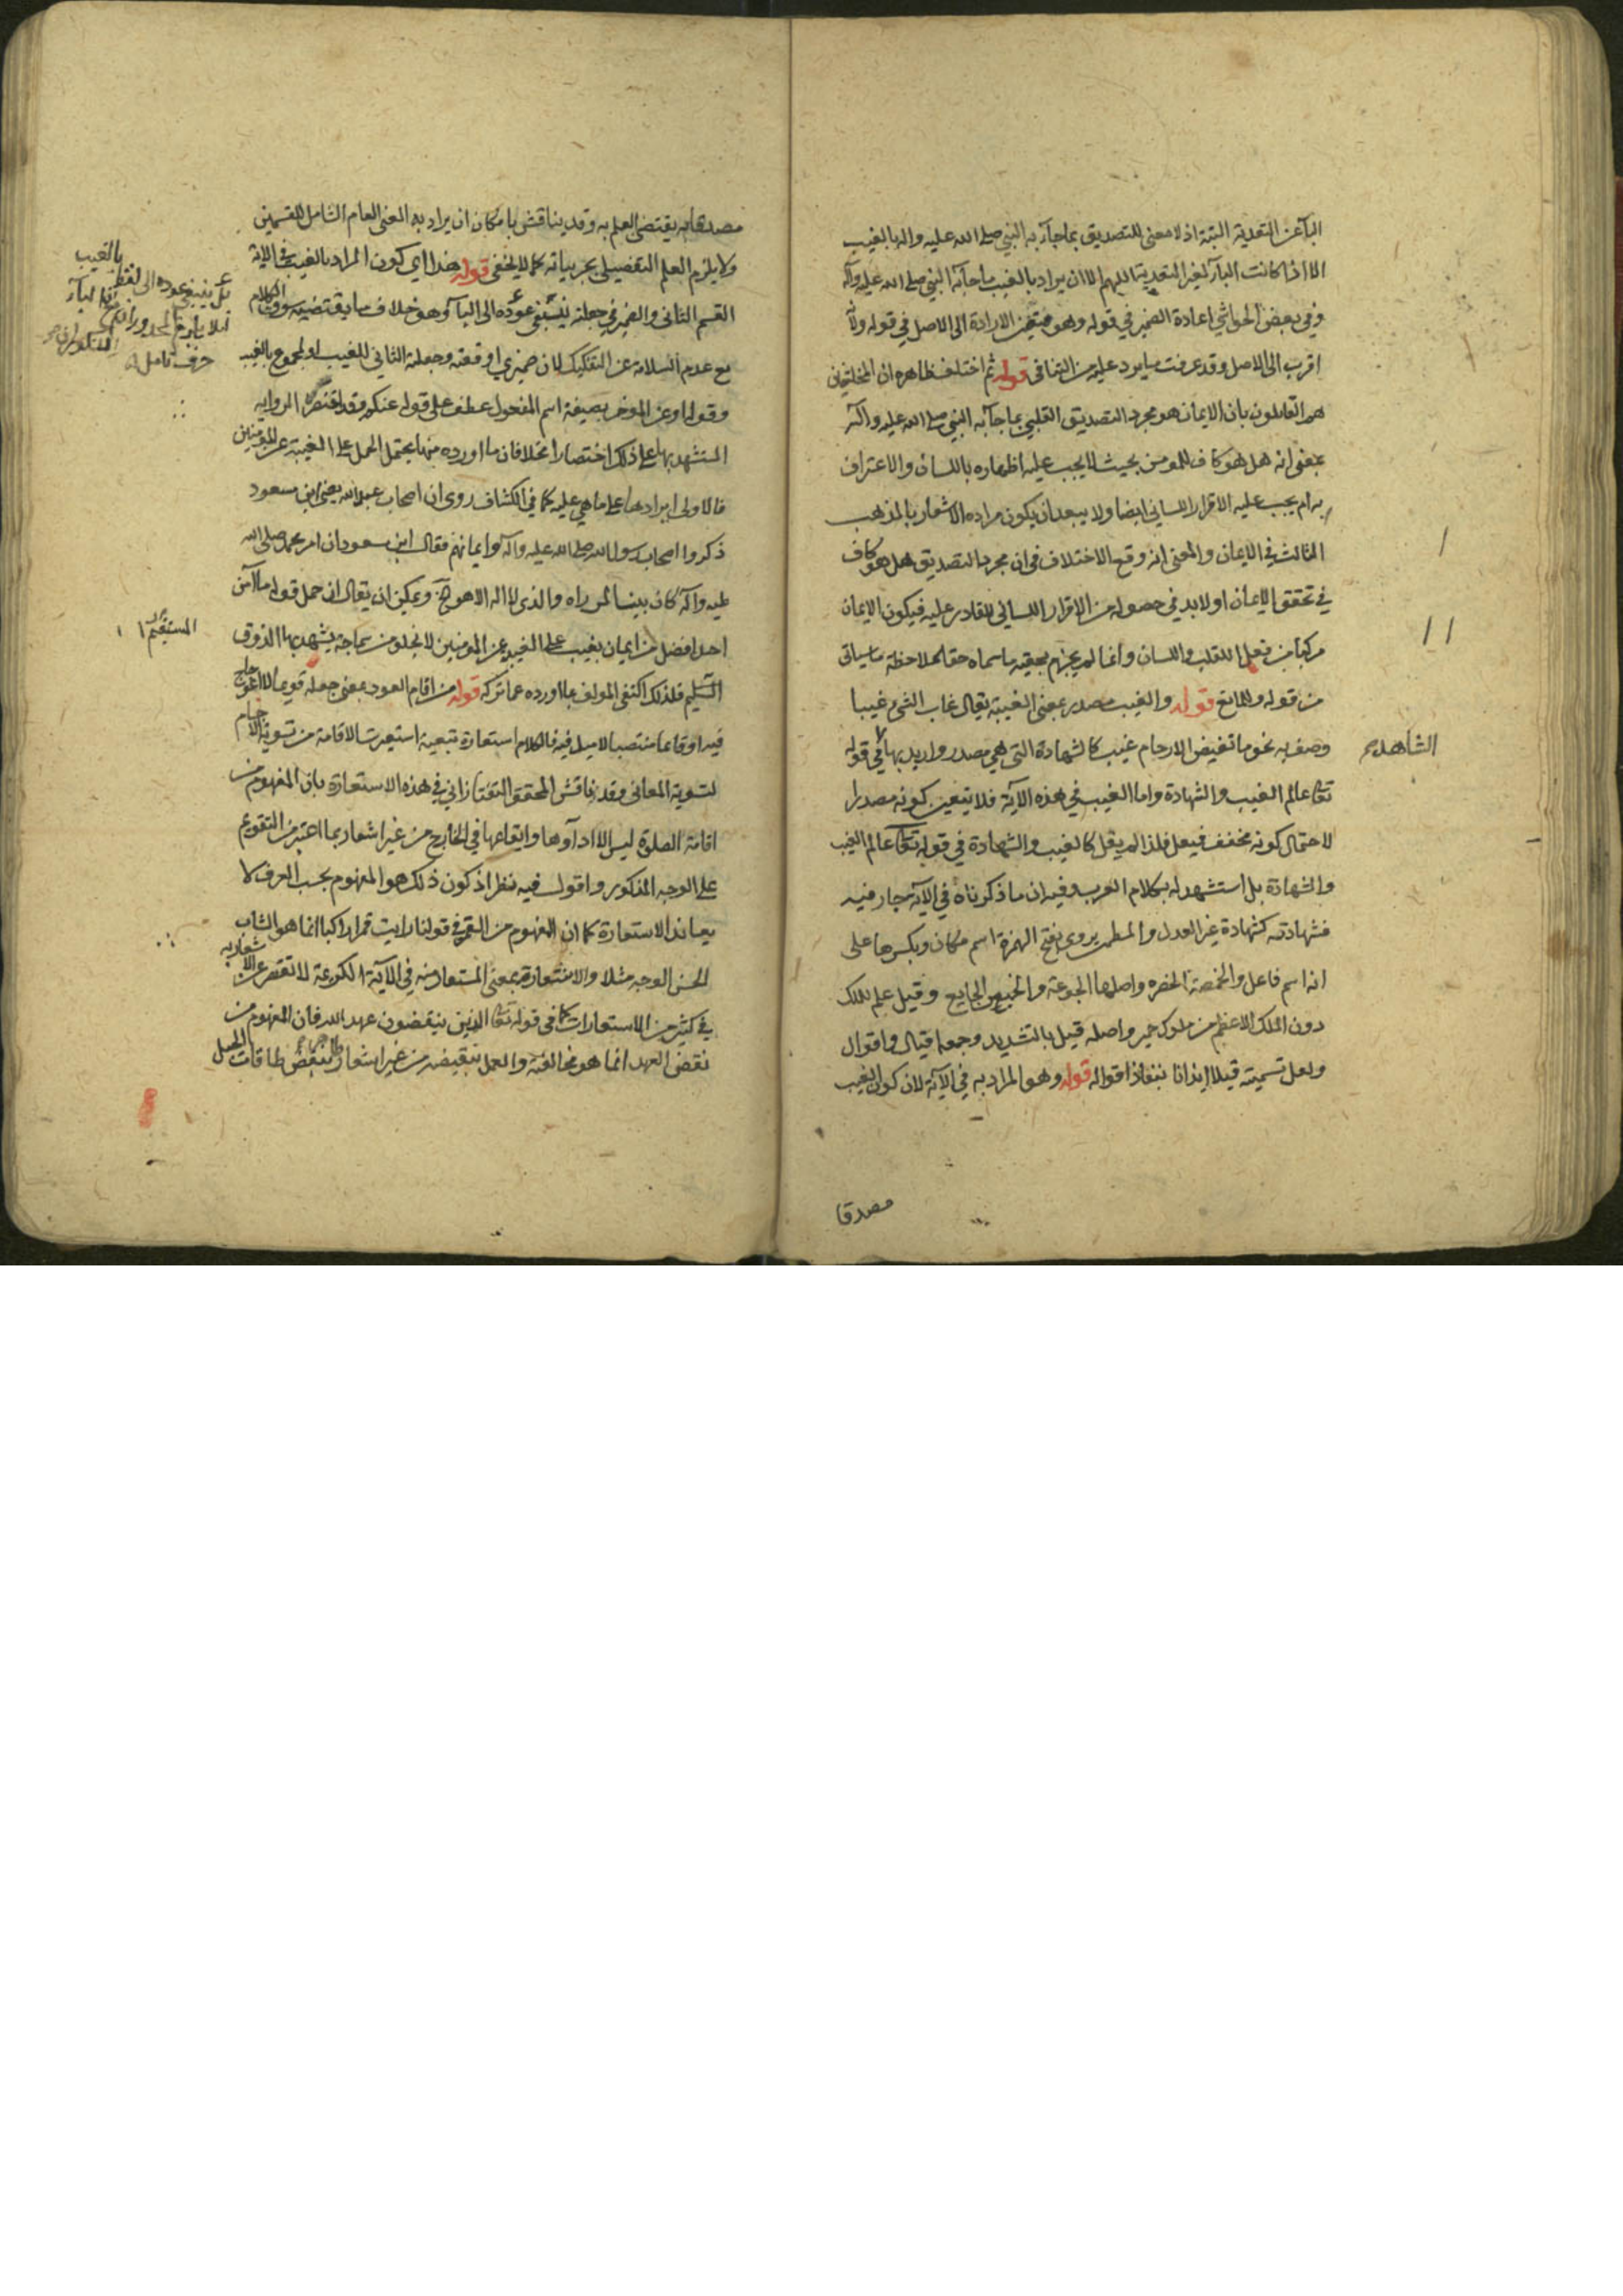 البآء عن التعدية البتة اذ لا معنى للتصديق بما جآء به النبي صلى الله عليه واله بالغيب
الا اذا كانت البآء لغير التعدية اللهم الا ان يراد بالغيب ما جآء به النبي صلى الله عليه وآله
وفي بعض الحواشي اعادة الضمير في قوله وهو الارادة الى الاصل في قوله ولأنه
اقرب الى الاصل وقد عرفت ما يرد عليه من التنافي قوله ثم اختلف ظاهره ان المختلفين
هم القايلون بان الايمان هو مجرد التصديق القلبي بما جآء به النبي صلى الله عليه وآله
بمعنى انه هل هو كاف للمومن بحيث لا يجب عليه اظهاره باللسان والاعتراف
به ام يجب عليه الاقرار اللساني ايضا ولا يبعد ان يكون مراده الاشعار بالمذهب
الثالث في الايمان والمعنى انه وقع الاختلاف في ان مجرد التصديق هل هو كاف
في تحقق الايمان او لابد في حصوله من الاقرار اللساني للقادر عليه فيكون الايمان
مركبا من فعل القلب واللسان وانما لم يجزم بحقيه ما سماه حقا لملاحظة ما سياتي
من قوله وللمانع قوله والغيب مصدر بمعنى الغيبة يقال غاب الشي غيبا
وصف به نحو ما تغيض الارحام غيب كالشهادة التي هي مصدر واريد بها في قوله
الشاهد
تعالى عالم الغيب والشهادة واما الغيب في هذه الآية فلا يتعين كونه مصدرا
لاحتمال كونه مخفف فيعل فلذا لم يقل كالغيب والشهادة في قوله تعالى عالم الغيب
والشهادة بل استشهد له بكلام العرب وفيه ان ما ذكرناه في الآية جار فيه
فشهادته كشهادة غير العدل والمطمئن يروى بفتح الهمزة اسم مكان وبكسرها على
انه اسم فاعل والخمصة الحفره واصلها الجوعة والخميص الجايع وقيل علم للملك
دون الملك الاعظم من ملوك حمير واصله قيل بالتشديد وجمعه اقيال واقوال
ولعل تسميته قيلا ايذانا بنفاذ اقواله قوله وهو المراد به في الآية لان كون الغيب
مصدقا
مصدقا به يقتضي العلم به وقد يناقش بامكان ان يراد به المعنى العام الشامل للقسمين
ولا يلزم العلم التفصيلي بجزيياته كما لا يخفى قوله هذا اي كون المراد بالغيب في الآية
القسم الثاني والضمير في جعلته ينبغي عوده الى البآء وهو خلاف ما يقتضيه سوق الكلام
بالغيب
بل ينبغي عوده الى لفظ
حرف تامل
مع عدم السلامة عن التفكيك لان ضميري اوقعته وجعلته الثاني للغيب او لمجموع بالغيب
وقوله او عن المومن به بصيغة اسم المفعول عطف على قوله عنكم وقد اقتصر الرواية
المستشهد بها على ذلك اختصارا مخلا فان ما اورده منها يحتمل الحمل على الغيبة عن المومنين
فالاولى ايرادها على ما هي عليه كما في الكشاف روى ان اصحاب عبدالله يعني ابن مسعود
ذكروا اصحاب رسول الله صلى الله عليه وآله وايمانهم فقال ابن مسعود ان امر محمد صلى الله
عليه وآله كان بينا لمن راه والذي لا اله الا هو الخ ويمكن ان يقال ان حمل قوله ما آمن
احد افضل من ايمان بغيب على الغيب عن المومنين لا يخلو من سماجة يشهد بها الذوق
المستقيم
السليم فلذلك اكتفى المولف بما اورده عما تركه قوله من اقام العود بمعنى جعله قويما لا اعوجاج
فيه او قايما منتصبا لا ميل فيه فالكلام استعارة تبعية استعيرت الاقامة من تسوية الاجسام
لتسوية المعاني وقد ناقش المحقق التفتازاني في هذه الاستعارة بان المفهوم من
اقامة الصلوة ليس الا ادآءها وايقاعها في الخارج من غير اشعار بما اعتبر من التقويم
على الوجه المذكور واقول فيه نظر اذ كون ذلك هو المفهوم بحسب العرف لا
يعاند الاستعارة كما ان المفهوم من القمر في قولنا رايت قمرا راكبا انما هو الشاب
الحسن الوجه مثلا والاستعارة بمعنى المستعار منه في الآية الكريمة لا تقصر عن الاشعار به
في كثير من الاستعارات كما في قوله تعالى الذين ينقضون عهد الله فان المفهوم من
نقض العهد انما هو مخالفته والعمل بنقيضه من غير اشعار بنقض طاقات الحبل